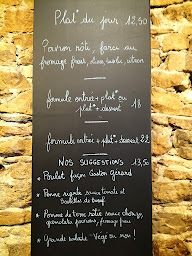 Plat du jour 12,50
Poivron rôti, farci au
fromage frais, olives, basilic, citron
formule entrée + plat ou
plat + dessert 18
formule entrée + plat + dessert 22
NOS SUGGESTIONS 13,50
* Poulet façon Gaston Gérard
* Penne rigate sauce tomate et
boulettes de boeuf
* Pomme de terre rôtie sauce
fromage frais
* Grande salade "Végé ou non"!